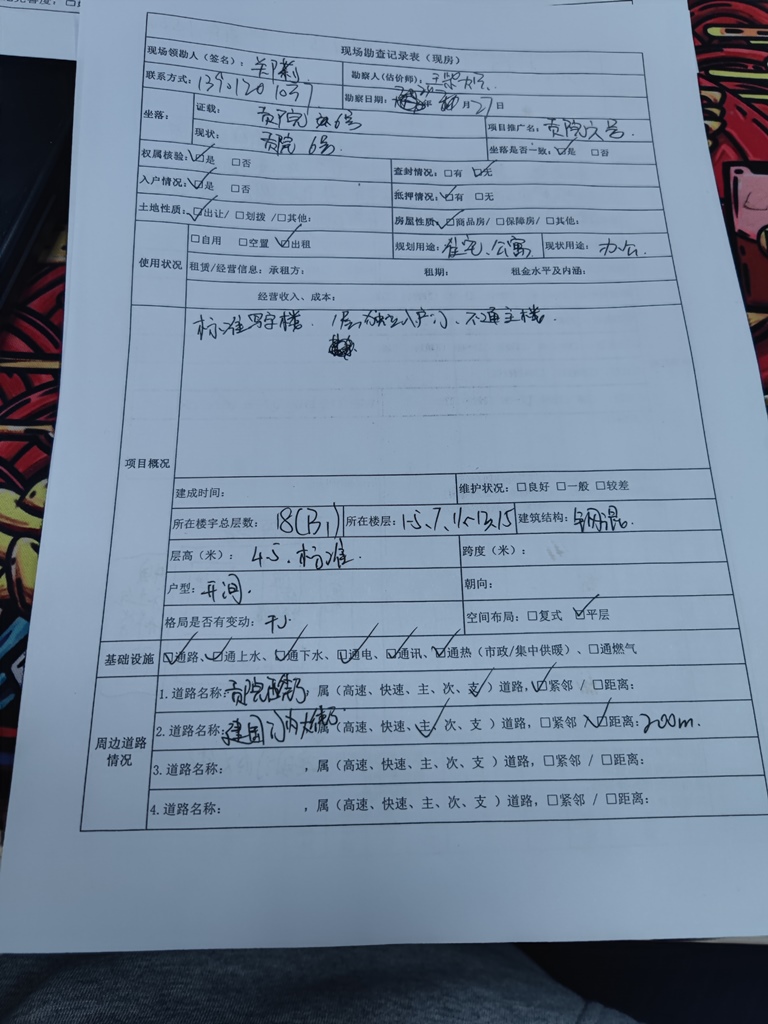 现场勘查记录表（现房）
现场领勘人（签名）： 勘察人(估价师)：
联系方式：
勘察日期： 年 月27日
坐落： 证载： 贡院 6号 项目推广名：贡院六号.
现状： 贡院 6号. 坐落是否一致：☑是 □否
权属核验：☑是 □否 查封情况：□有 ☑无
入户情况：☑是 □否 抵押情况：☑有 □无
土地性质：☑出让/ □划拨 /□其他： 房屋性质：☑商品房/ □保障房/ □其他：
使用状况 □自用 □空置 ☑出租 规划用途：住宅、公寓 现状用途：办公.
租赁/经营信息：承租方： 租期： 租金水平及内涵：
经营收入、成本：
项目概况 标准写字楼. 1层独立入户门、不通主楼.
建成时间： 维护状况：□良好 □一般 □较差
所在楼宇总层数： 18(B1) 所在楼层：1-5、7、11-13、15 建筑结构：钢混.
层高（米）： 4.5. 标准. 跨度（米）：
户型：开间. 朝向：
格局是否有变动： 空间布局：□复式 ☑平层
基础设施 ☑通路、☑通上水、☑通下水、☑通电、☑通讯、☑通热（市政/集中供暖）、□通燃气
周边道路情况 1.道路名称：贡院西街，属（高速、快速、主、次、支✓）道路，☑紧邻 / □距离：
2.道路名称：建国门内大街，属（高速、快速、主✓、次、支 ）道路，□紧邻 / ☑距离：200m.
3.道路名称： ，属（高速、快速、主、次、支 ）道路，□紧邻 / □距离：
4.道路名称： ，属（高速、快速、主、次、支 ）道路，□紧邻 / □距离：